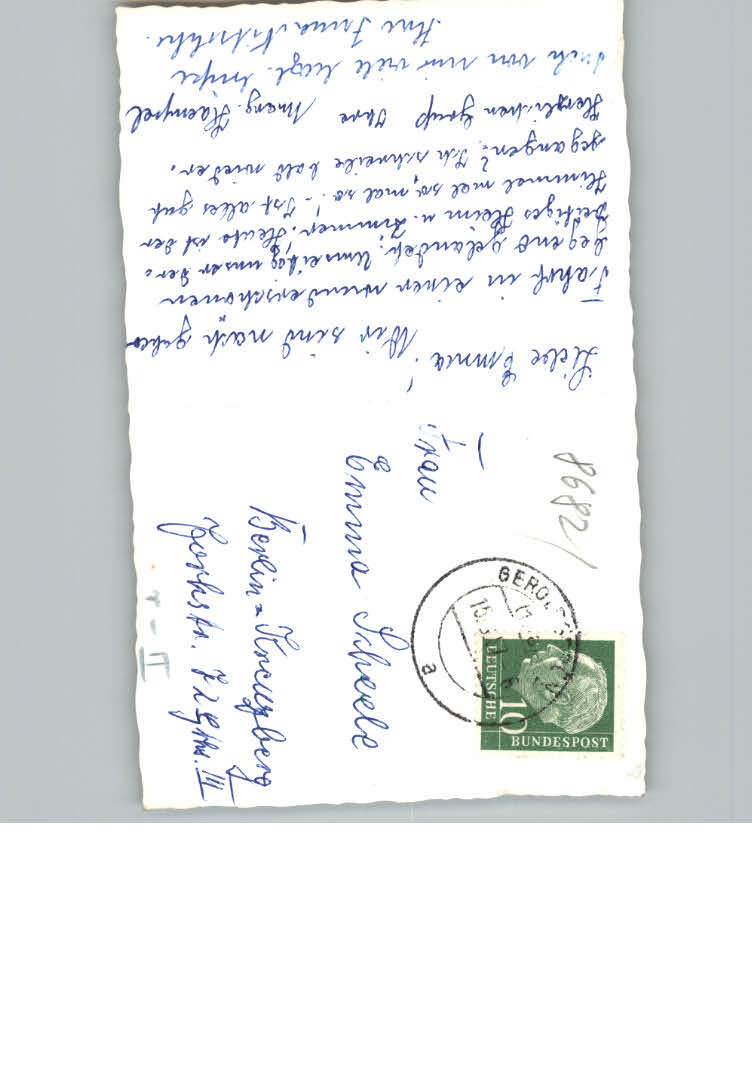 Liebe Emma! Wir sind nach guter
Fahrt in einer wunderschönen
Gegend gelandet; Umseitig unser der-
zeitiges Heim u. Zimmer. Heute ist der
Himmel mal so, mal so! Ist alles gut
gegangen? Ich schreibe bald wieder.
Herzlichen Gruß Ihre Marg. Haempel
Auch von mir viele herzl. Grüße
Ihre Irma
8682/
Frau
Emma Scheele
Berlin-Kreuzberg
Yorkstr. 72 Gths. III
GEROL
15
a
DEUTSCHE
BUNDESPOST
10